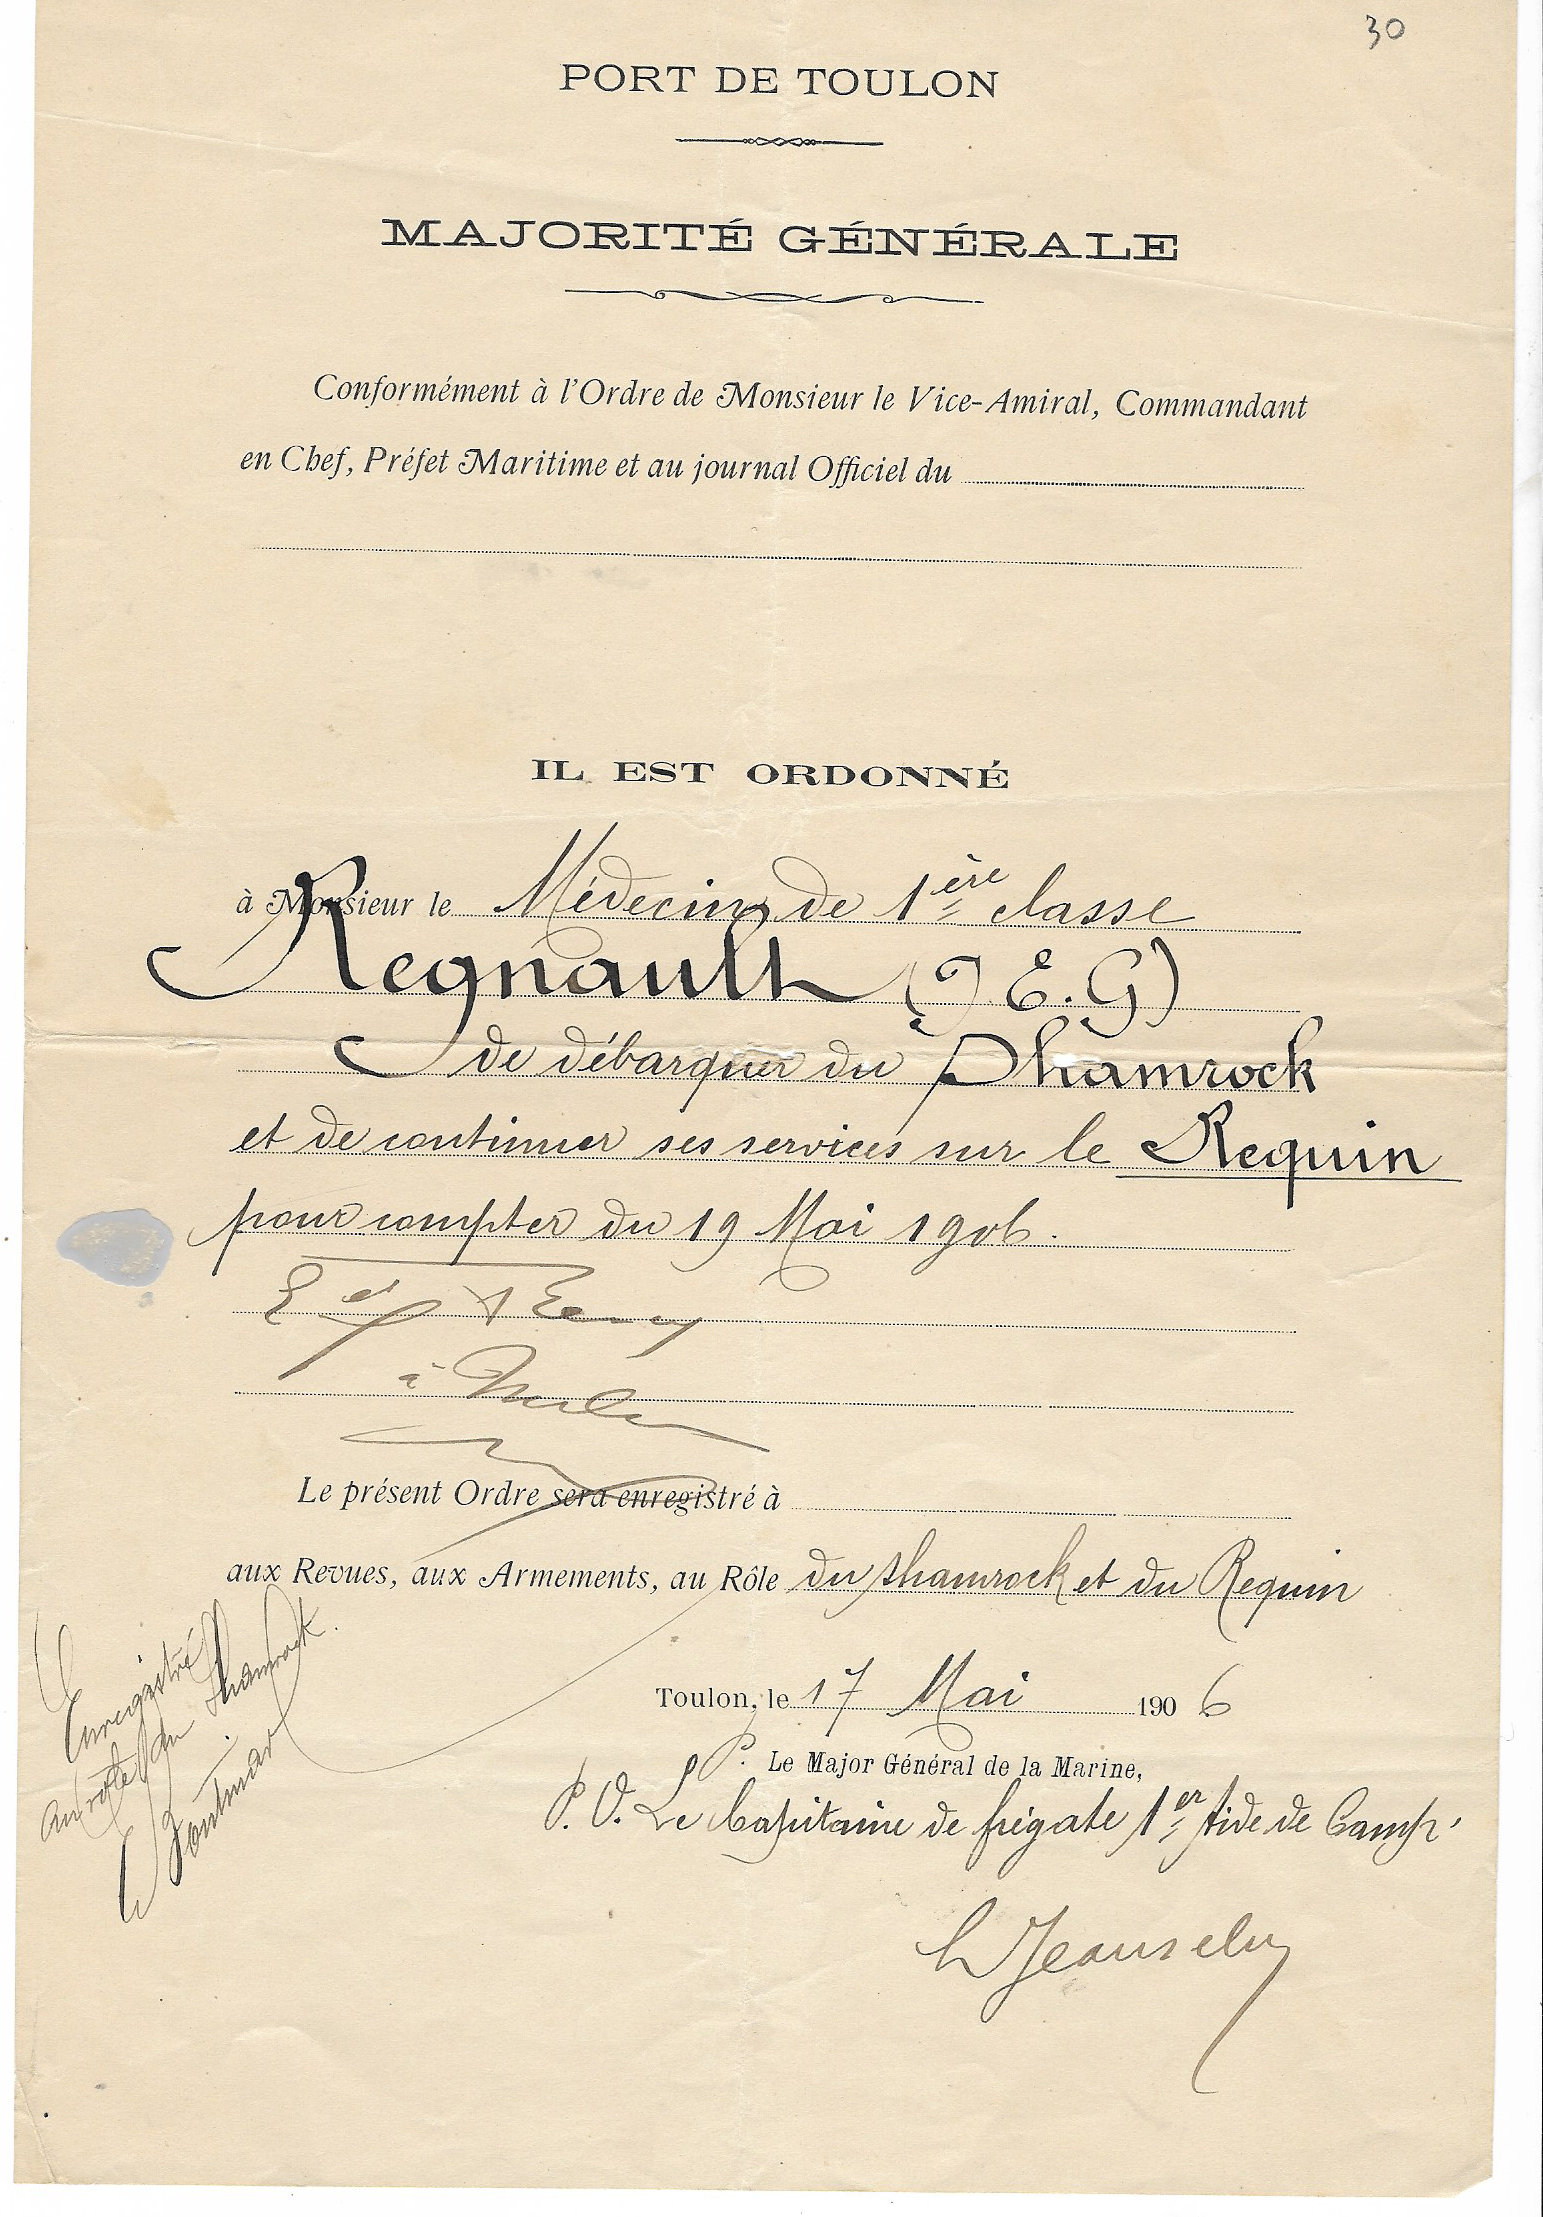 30
PORT DE TOULON
MAJORITÉ GÉNÉRALE
Conformément à l'Ordre de Monsieur le Vice-Amiral, Commandant
en Chef, Préfet Maritime et au journal Officiel du
IL EST ORDONNÉ
à Monsieur le Médecin de 1ère classe
Regnault (J. E. G)
de débarquer du Shamrock
et de continuer ses services sur le Requin
pour compter du 19 Mai 1906.
à
Le présent Ordre sera enregistré à
aux Revues, aux Armements, au Rôle du Shamrock et du Requin
Enregistré
au rôle du Shamrock.
Toulon, le 17 Mai 1906
P. Le Major Général de la Marine,
P. O. Le Capitaine de frégate 1er Aide de Camp.